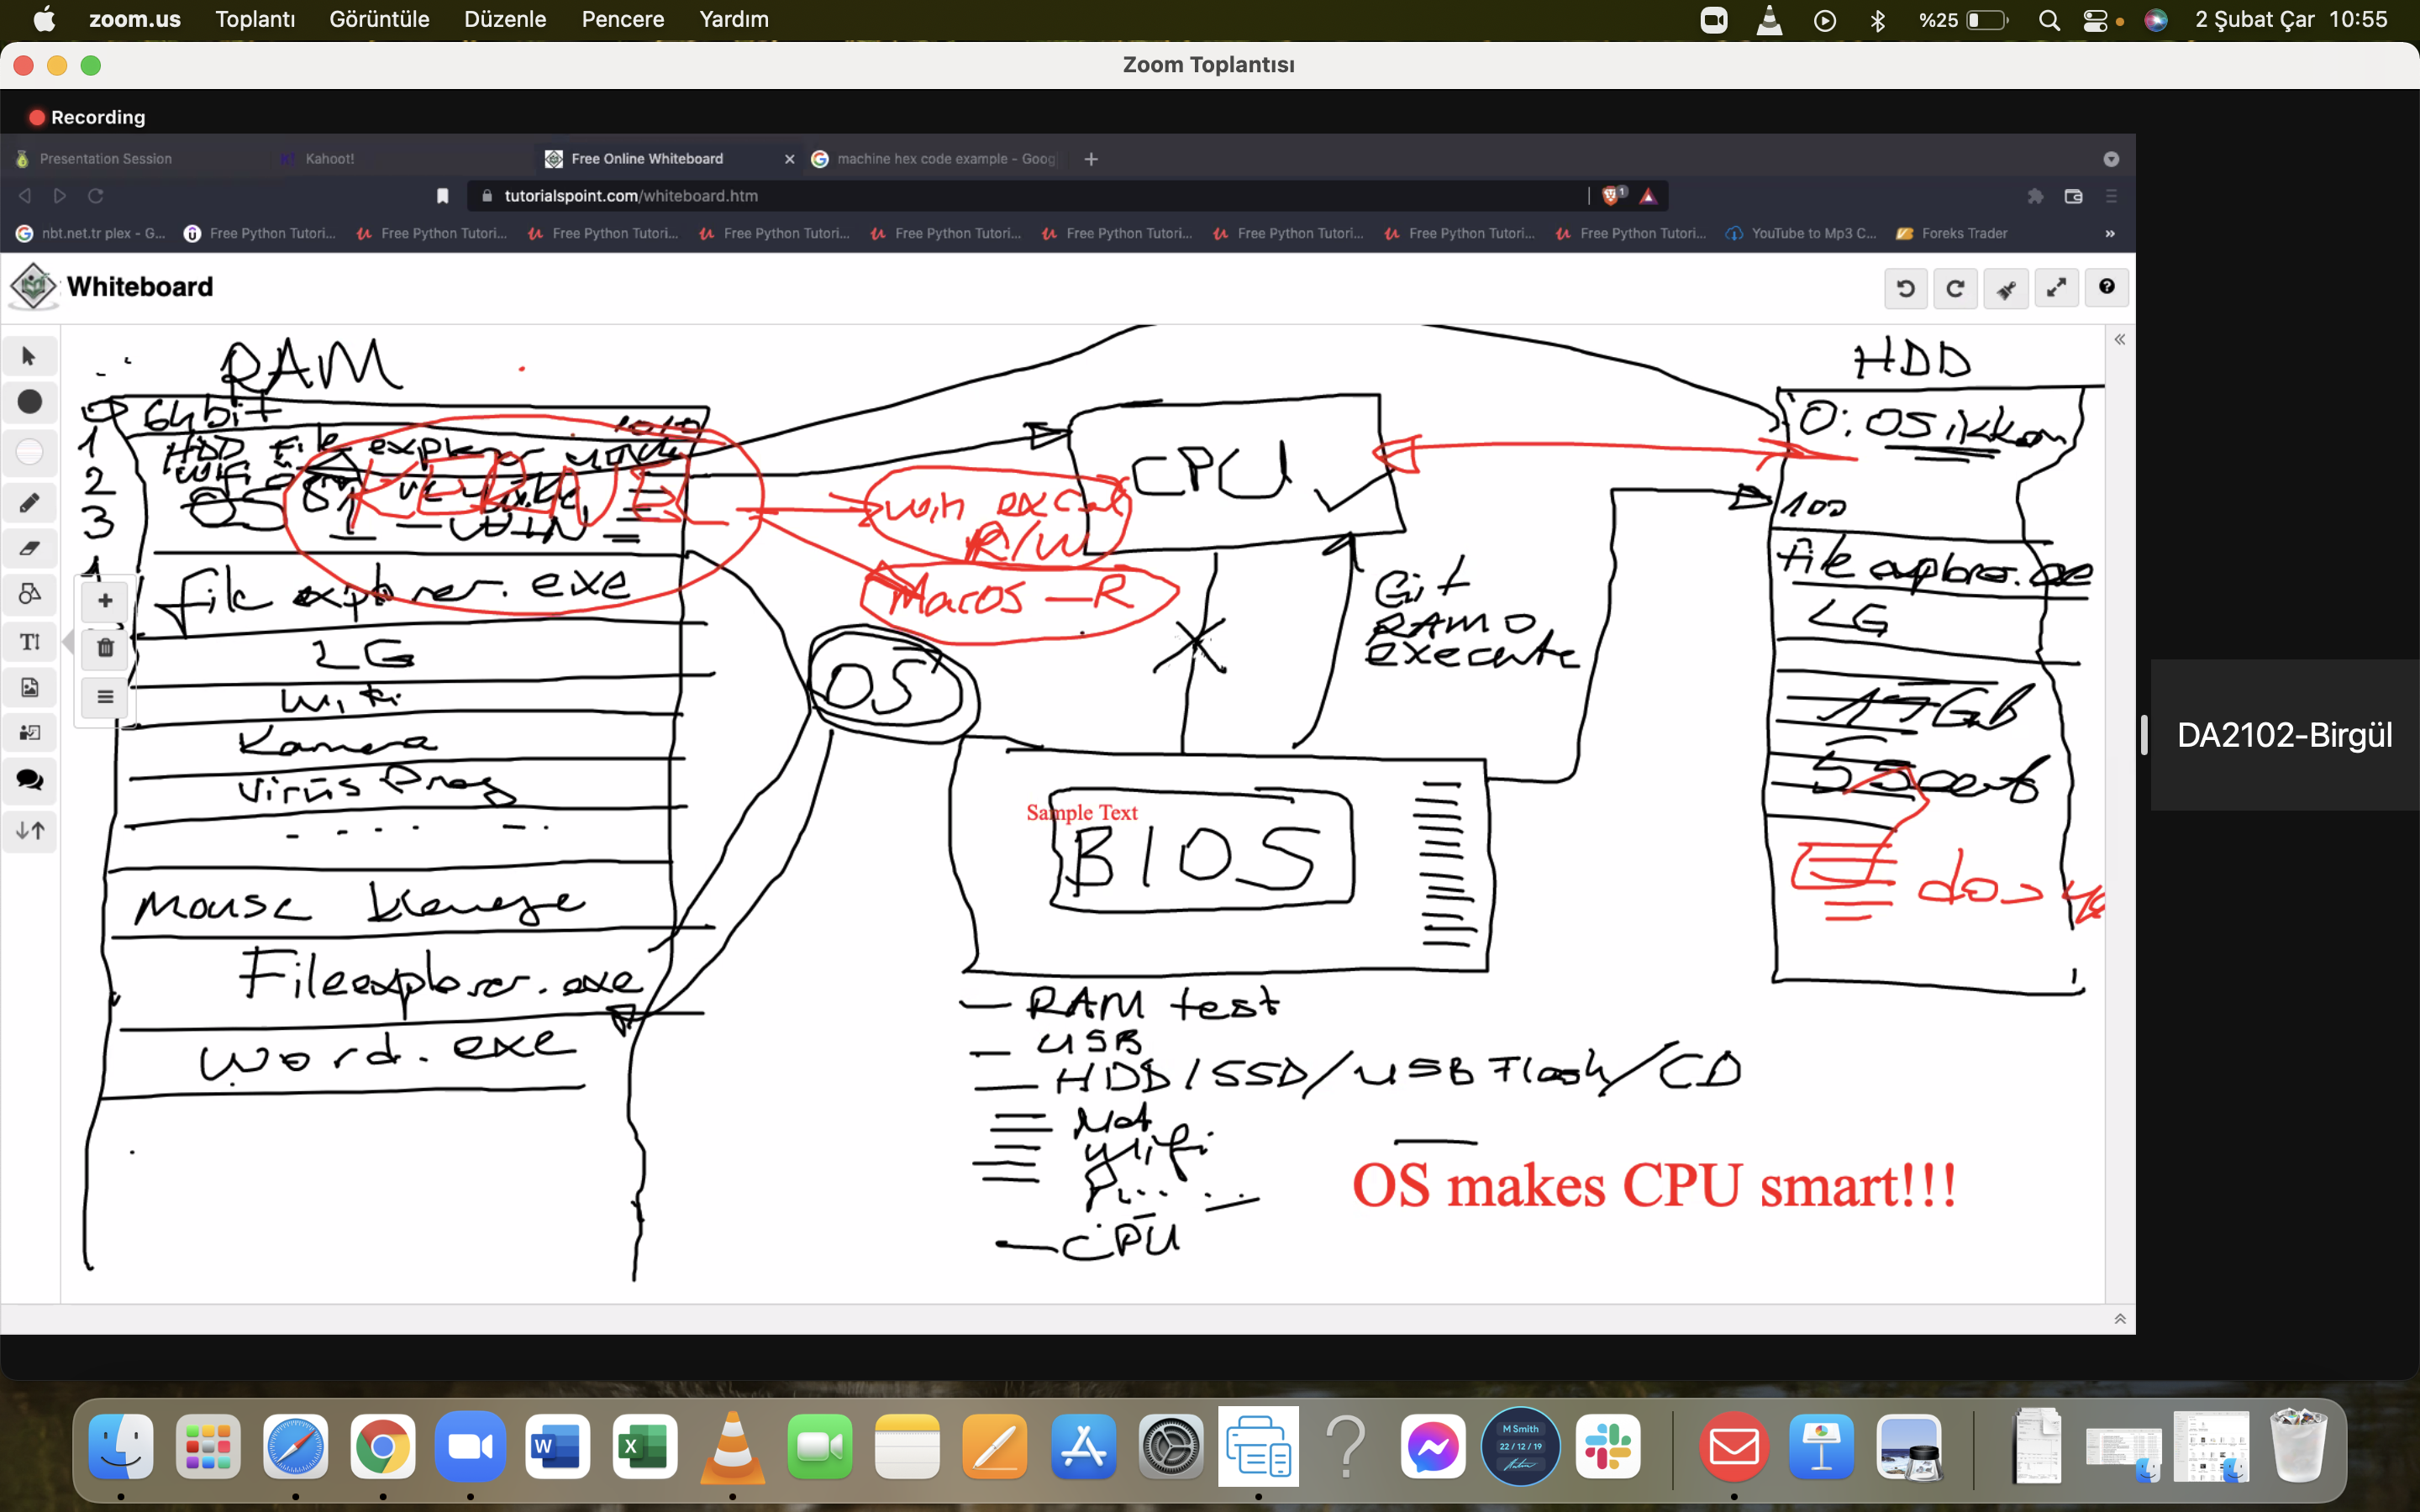 zoom.us Toplantı Görüntüle Düzenle Pencere Yardım %25 2 Şubat Çar 10:55
Zoom Toplantısı
Recording
Presentation Session Kahoot! Free Online Whiteboard machine hex code example - Goog
tutorialspoint.com/whiteboard.htm 1
nbt.net.tr plex - G... Free Python Tutori... Free Python Tutori... Free Python Tutori... Free Python Tutori... Free Python Tutori... Free Python Tutori... Free Python Tutori... Free Python Tutori... Free Python Tutori... YouTube to Mp3 C... Foreks Trader »
Whiteboard
RAM
64bit
1 HDD File explorer
2 wifi
3
KERNEL
file explorer.exe
2G
wifi
Kamera
virüs Prog
Mouse
Fileexplorer.exe
word.exe
CPU
win excel
R/W
Macos - R
OS
Git
RAM 0
execute
Sample Text
BIOS
- RAM test
- USB
- HDD / SSD / USB Flash / CD
Net
wifi
- CPU
OS makes CPU smart!!!
HDD
0: OS ikkon
100
file explorer.exe
2G
DA2102-Birgül
M Smith
22 / 12 / 19